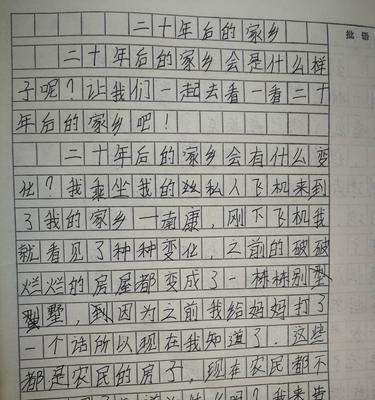 批语
二十年后的家乡
二十年后的家乡会是什么样
子呢？让我们一起去看一看二十
年后的家乡吧！
二十年后的家乡会有什么变
化？我乘坐我的私人飞机来到
了我的家乡一南康，刚下飞机我
就看见了种种变化，之前的破破
烂烂的房屋都变成了一栋栋别型
墅，到因为之前我给妈妈打了
一个话所以现在我知道了．这些
都是农民的房子，现在农民都不